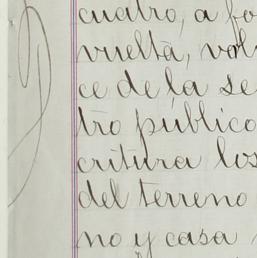 cuatro, a fo
vuelta, vol
ce de la se
tro público
critura los
del terreno
no y casa